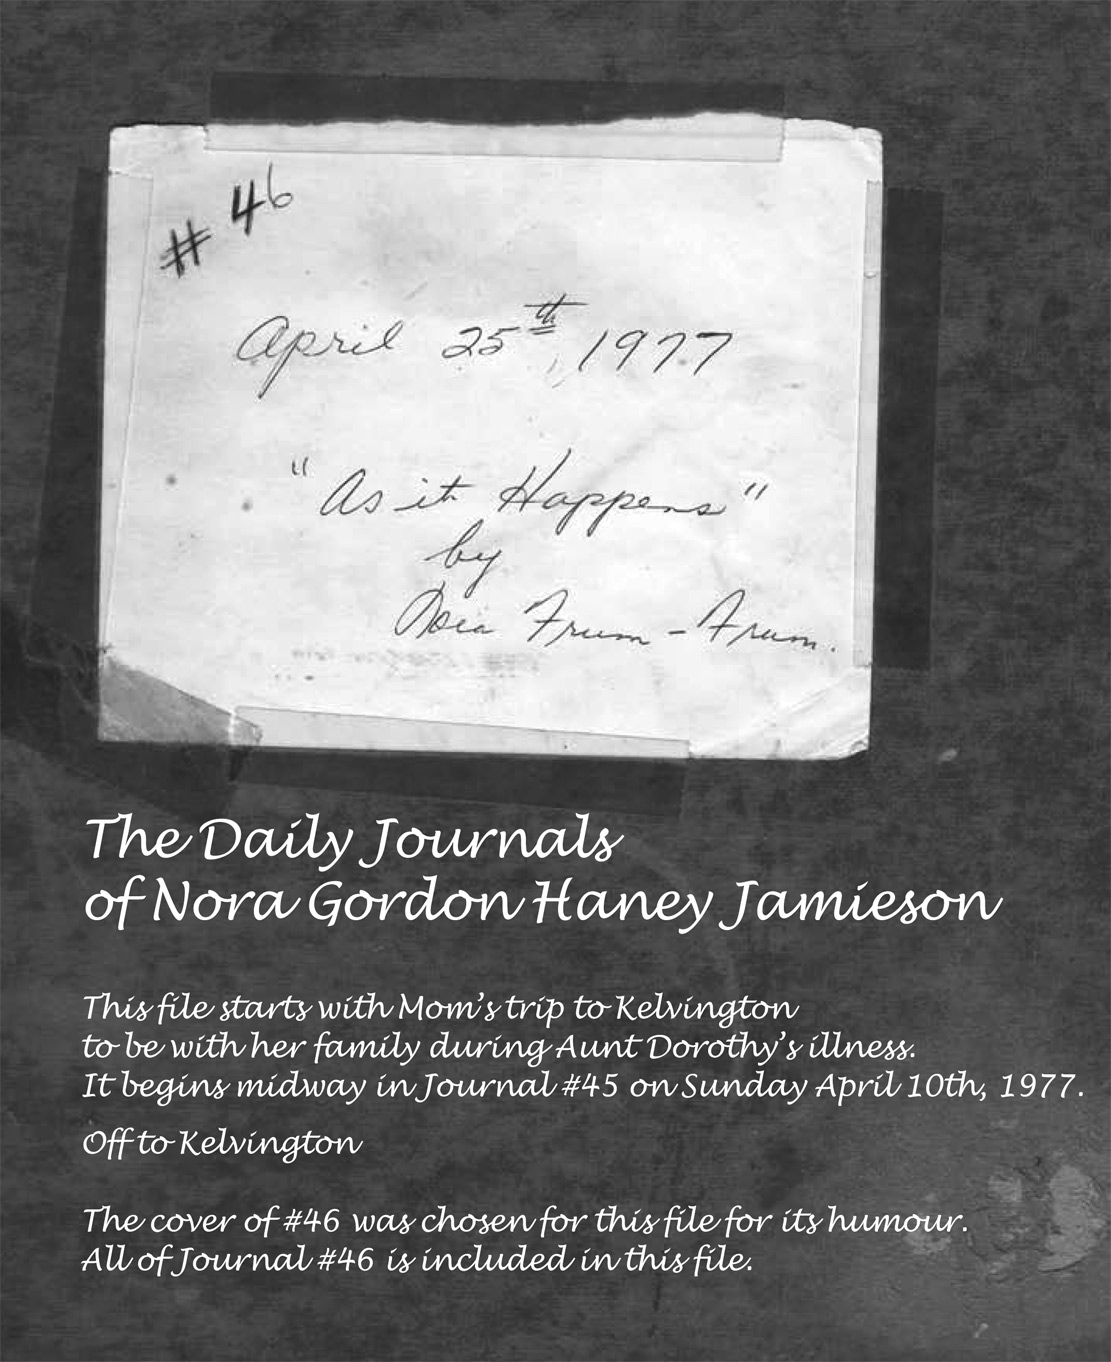 # 46
April 25th, 1977
"As it Happens"
by
Nora Frum - Frum.
The Daily Journals
of Nora Gordon Haney Jamieson
This file starts with Mom's trip to Kelvington
to be with her family during Aunt Dorothy's illness.
It begins midway in Journal #45 on Sunday April 10th, 1977.
Off to Kelvington
The cover of #46 was chosen for this file for its humour.
All of Journal #46 is included in this file.